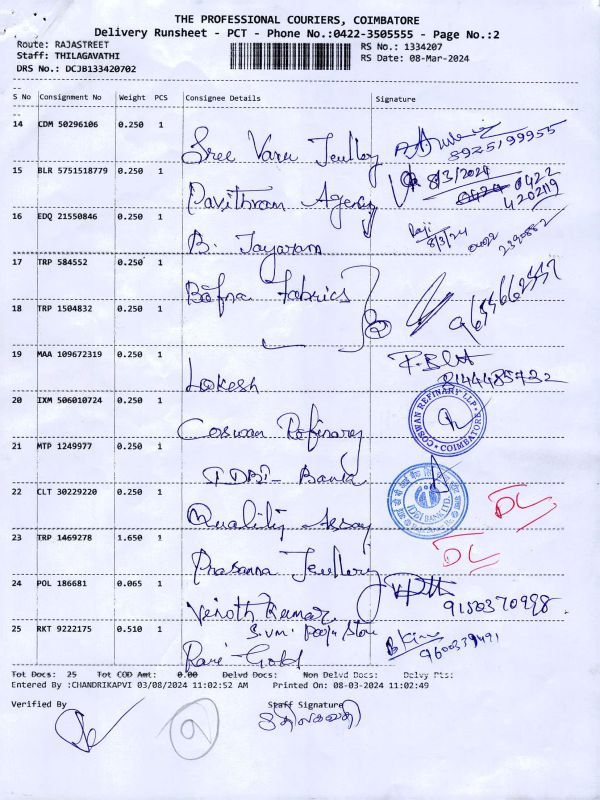 THE PROFESSIONAL COURIERS, COIMBATORE
Delivery Runsheet - PCT - Phone No.:0422-3505555 - Page No.:2
Route: RAJASTREET RS No.: 1334207
Staff: THILAGAVATHI RS Date: 08-Mar-2024
DRS No.: DCJB133420702
S No Consignment No Weight PCS Consignee Details Signature
14 CDM 50296106 0.250 1
Sree Varu Jewllery 8925199955
15 BLR 5751518779 0.250 1 8/3/2024
Pavithram Agency 0424 0422
4202119
16 EDQ 21550846 0.250 1
B. Jayaram Raji 8/3/24 0422 2390882
17 TRP 584552 0.250 1
Bafna Fabrics 9655662557
18 TRP 1504832 0.250 1
19 MAA 109672319 0.250 1
Lokesh
20 IXM 506010724 0.250 1
COSWAN REFINARY LLP. COIMBATORE
Coswan Refinary
21 MTP 1249977 0.250 1
IDBI - Bank
22 CLT 30229220 0.250 1
IDBI BANK LTD.
Quality Assay DL
23 TRP 1469278 1.650 1
Prasanna Jewllery DL
24 POL 186681 0.065 1
Vinoth Kumar 9150370998
S.V.M. Pooja Store
25 RKT 9222175 0.510 1
Ravi Gold 9600339491
Tot Docs: 25 Tot COD Amt: 0.00 Delvd Docs: Non Delvd Docs: Delvy Pts:
Entered By :CHANDRIKAPVI 03/08/2024 11:02:52 AM Printed On: 08-03-2024 11:02:49
Verified By Staff Signature
2